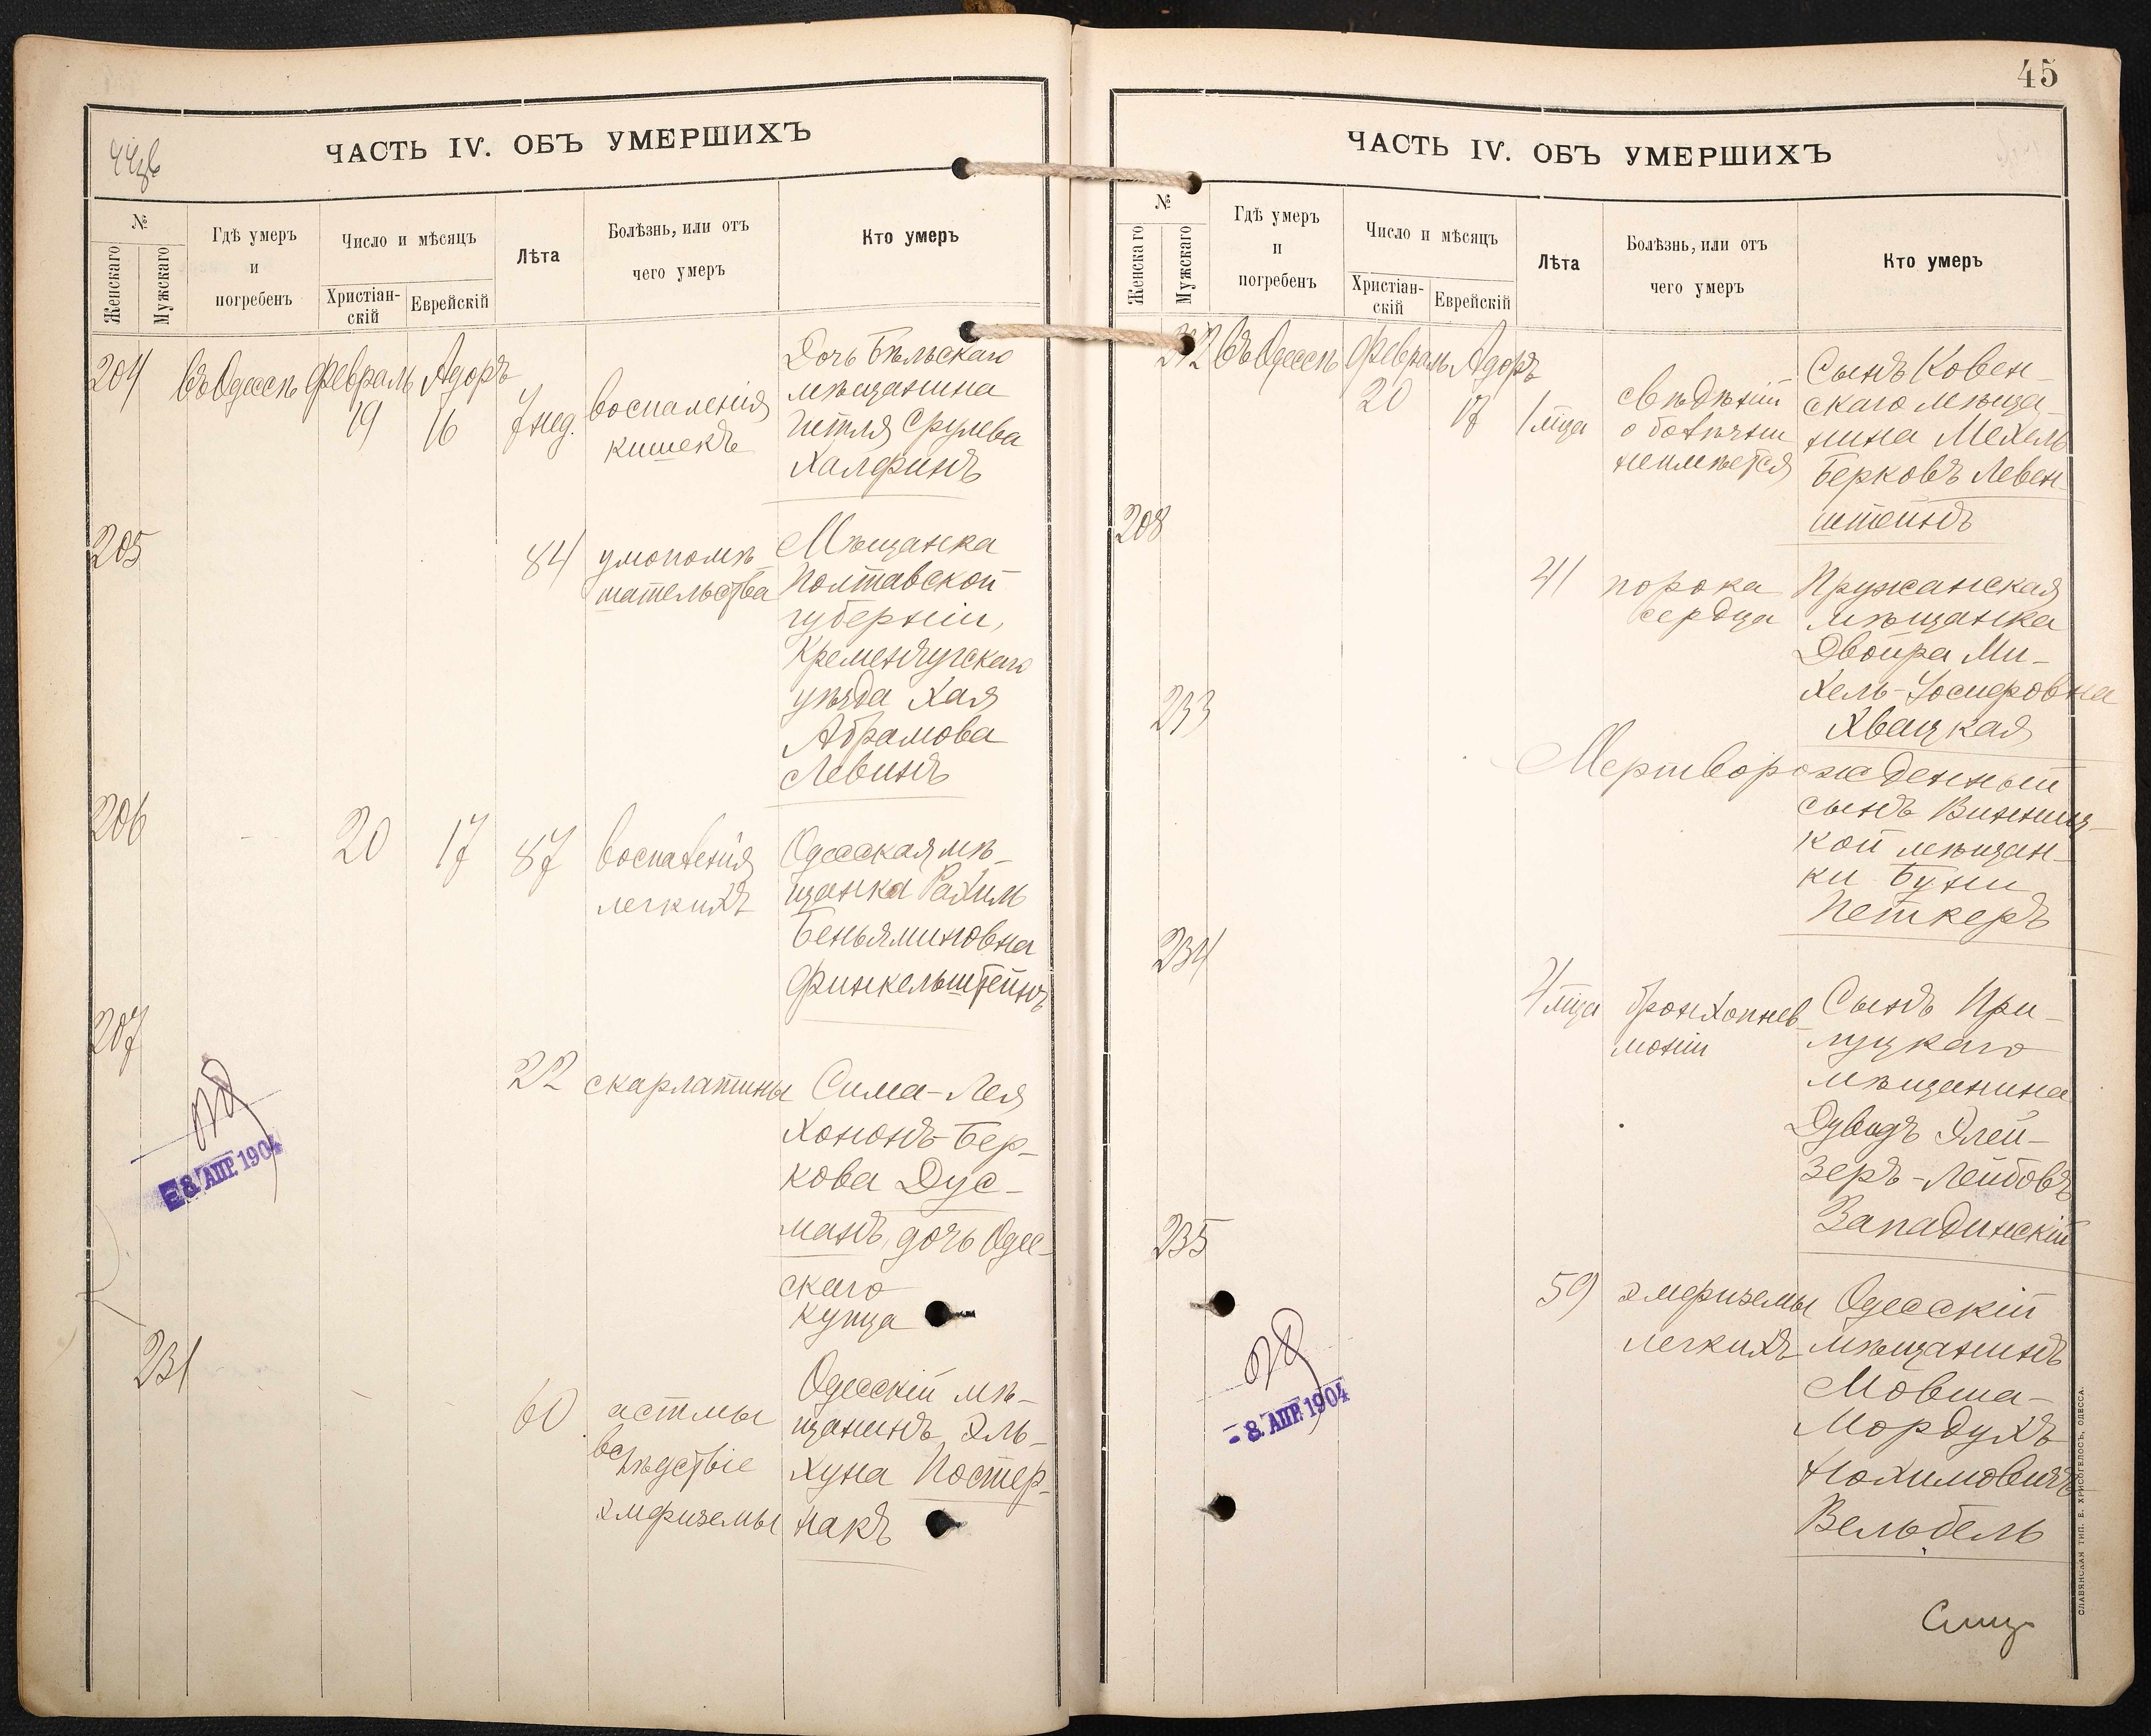 ЧАСТЬ IV. ОБЪ УМЕРШИХЪ
№
Женскаго
Мужскаго
Гдѣ умеръ
и
погребенъ
Число и мѣсяцъ
Христіан-
скій
Еврейскій
Лѣта
Болѣзнь, или отъ
чего умеръ
Кто умеръ
204
Въ Одессѣ
Февраль
19
Адоръ
16
7 нед.
воспаленія
кишекъ
Дочь Бѣльскаго
мѣщанина
Гитля Срулева
Халфинъ
205
84
умопомѣ-
шательства
Мѣщанка
Полтавской
губерніи,
Кременчугскаго
уѣзда Хая
Абрамова
Левинъ
206
20
17
87
воспаленія
легкихъ
Одесская мѣ-
щанка Рахиль
Беньяминовна
Финкельштейнъ
207
22
скарлатины
Сима-Лея
Хононъ-Бер-
кова Дус-
манъ, дочь Одес-
скаго
купца
231
60
астмы
вслѣдствіе
эмфиземы
Одесскій мѣ-
щанинъ Эль-
хуна Постер-
накъ
8 АПР. 1904
45
ЧАСТЬ IV. ОБЪ УМЕРШИХЪ
№
Женскаго
Мужскаго
Гдѣ умеръ
и
погребенъ
Число и мѣсяцъ
Христіан-
скій
Еврейскій
Лѣта
Болѣзнь, или отъ
чего умеръ
Кто умеръ
232
Въ Одессѣ
Февраль
20
Адоръ
17
1 мца
свѣдѣній
о болѣзни
неимѣется
Сынъ Ковен-
скаго мѣща-
нина Мехель
Берковъ Левен-
штейнъ
208
41
порока
сердца
Пружанская
мѣщанка
Двойра Ми-
хель-Іосифовна
Хвацкая
233
Мертворожденный
сынъ Винниц-
кой мѣщан-
ки Буни
Петкеръ
234
4 мца
бронхопнев-
моніи
Сынъ При-
луцкаго
мѣщанина
Дувидъ Элей-
зеръ-Лейбовъ
Западинскій
235
59
эмфиземы
легкихъ
Одесскій
мѣщанинъ
Мовша-
Мордухъ
Нохимовичъ
Вельбель
- 8 АПР. 1904
СЛАВЯНСКАЯ ТИП. Е. ХРИСОГЕЛОСЪ, ОДЕССА.